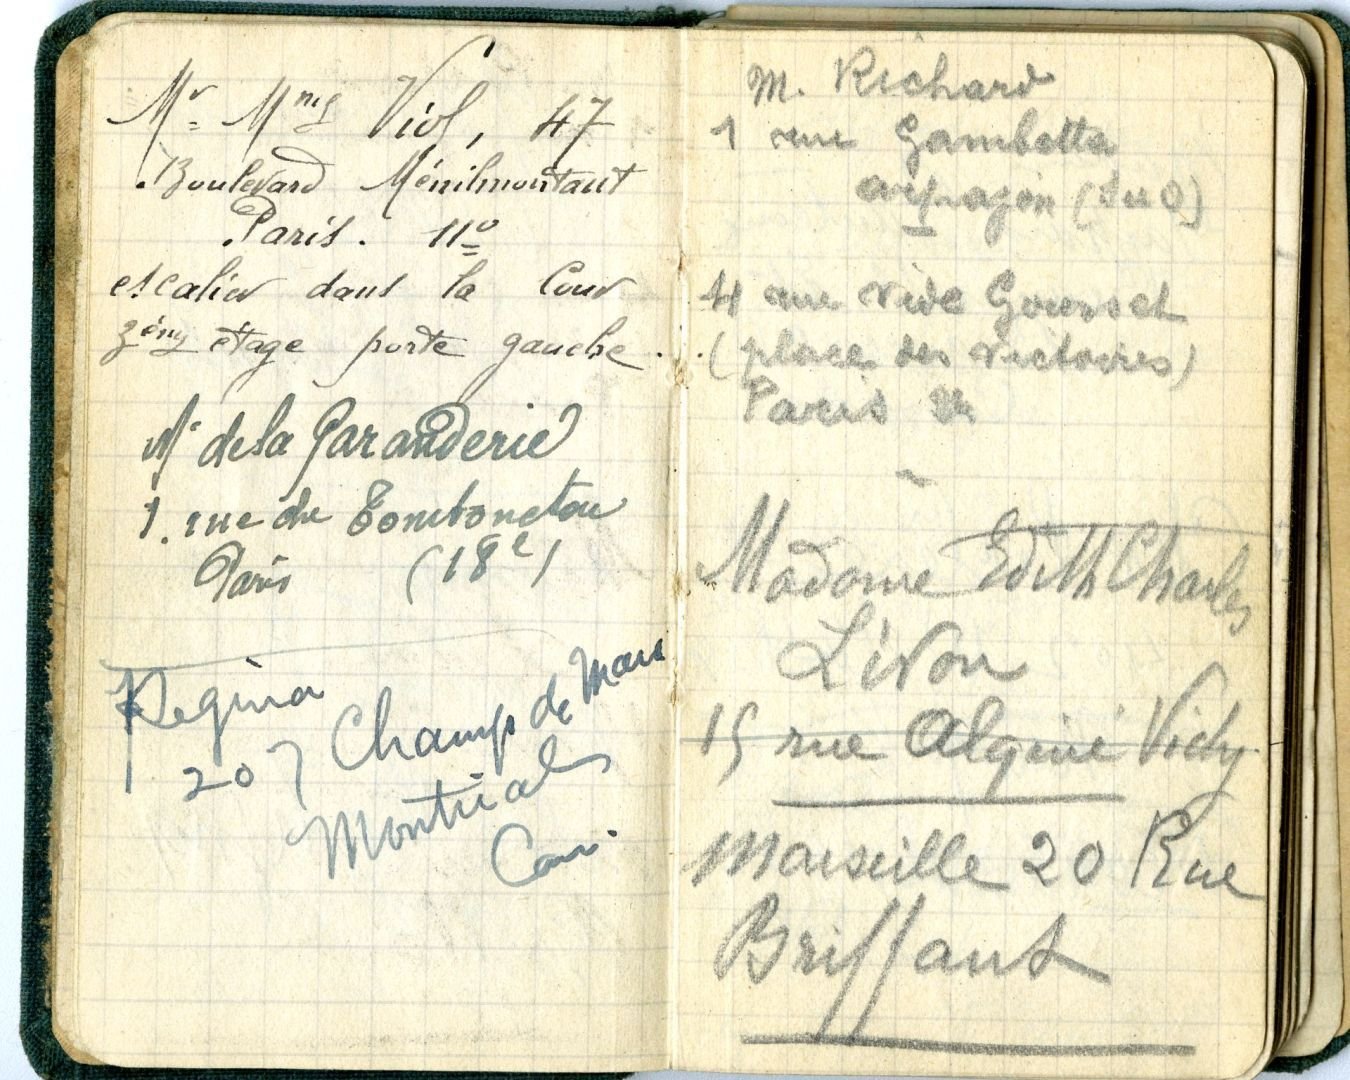 Mr. Mme Viol, 47
Boulevard Ménilmontant
Paris. 11e
escalier dans la Cour
3ème étage porte gauche.
Mr de la Garanderie
1. rue du Tombouctou
Paris (18e)
Regina
207 Champ de Mars
Montréal
Can.
M. Richard
1 rue Gambetta
4 rue Vide Gousset
(place des victoires)
Paris
Madame Edith Charles
Livon
15 rue Algerie Vichy
Marseille 20 Rue
Briffaut